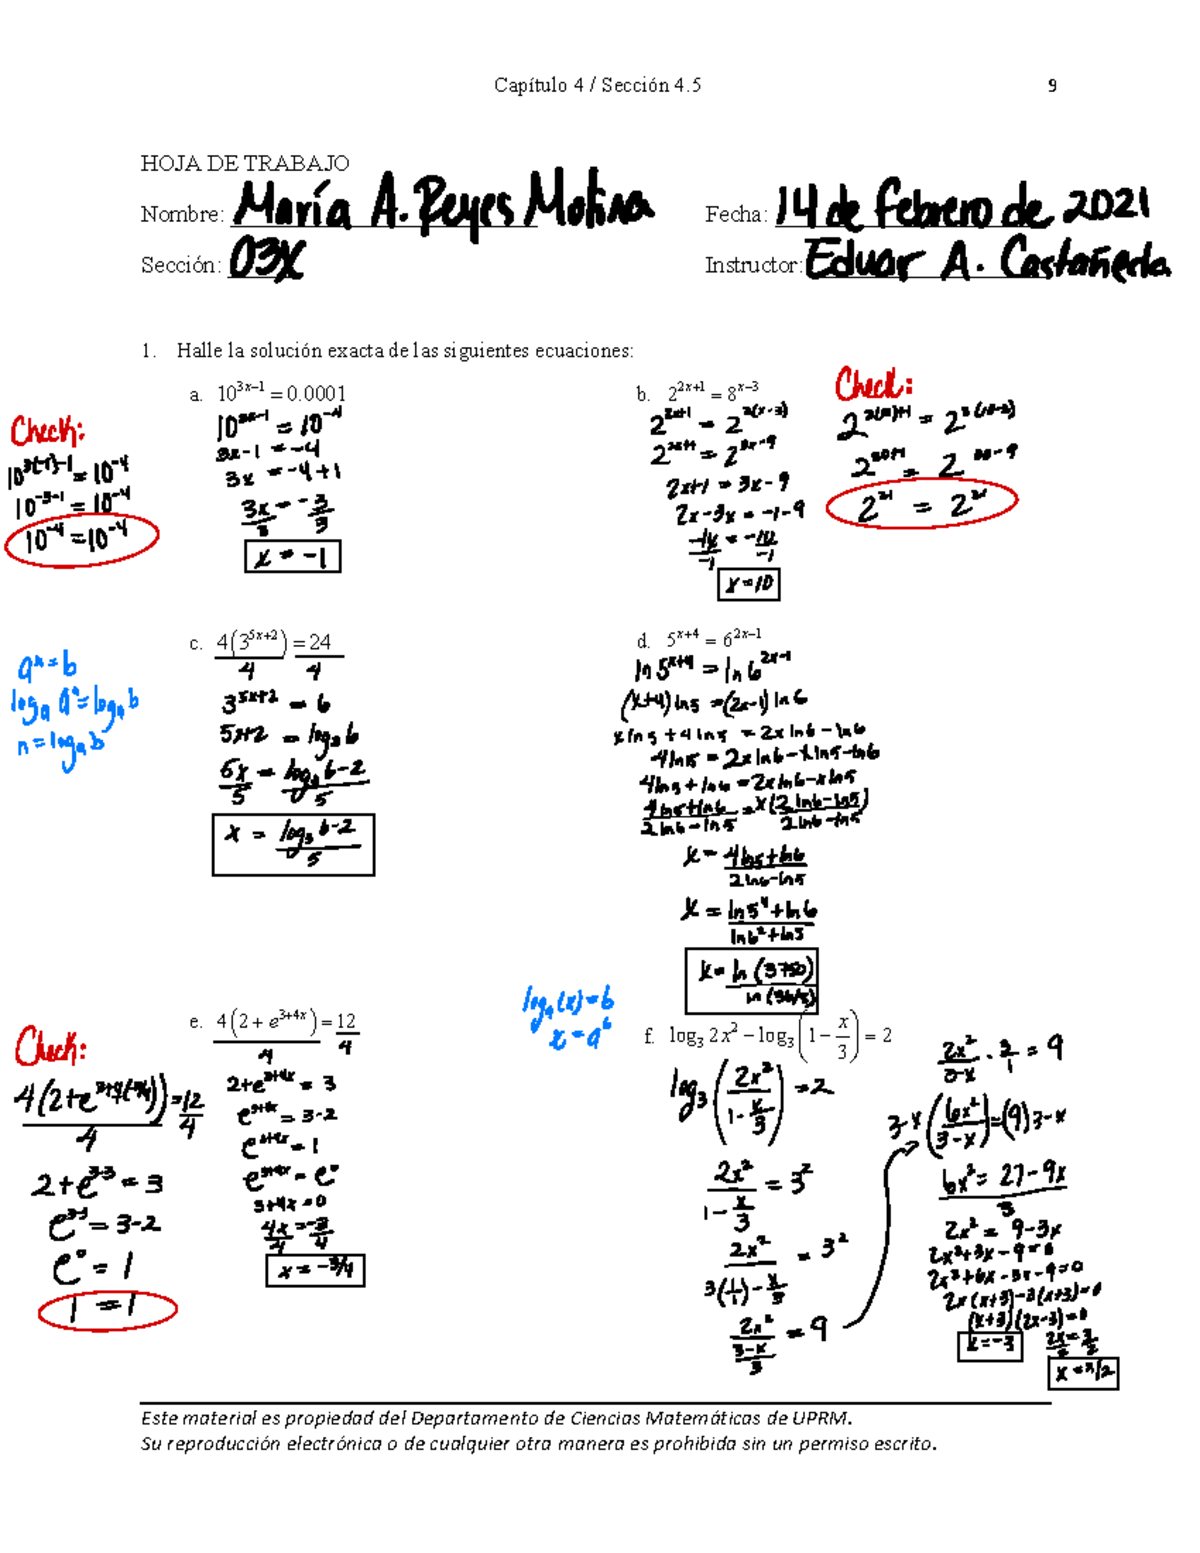 Capítulo 4 / Sección 4.5 9
HOJA DE TRABAJO
Nombre: María A. Reyes Molina Fecha: 14 de febrero de 2021
Sección: 03X Instructor: Eduar A. Castañeda
1. Halle la solución exacta de las siguientes ecuaciones:
a. 10^{3x−1} = 0.0001
10^{3x-1} = 10^{-4}
3x-1 = -4
3x = -4+1
3x/3 = -3/3
x = -1
Check:
10^{3(-1)-1} = 10^{-4}
10^{-3-1} = 10^{-4}
10^{-4} = 10^{-4}
b. 2^{2x+1} = 8^{x−3}
2^{2x+1} = 2^{3(x-3)}
2^{2x+1} = 2^{3x-9}
2x+1 = 3x-9
2x-3x = -1-9
-1x/-1 = -10/-1
x=10
Check:
2^{2(10)+1} = 2^{3(10-3)}
2^{20+1} = 2^{30-9}
2^{21} = 2^{21}
c. 4(3^{5x+2}) = 24
4 4
3^{5x+2} = 6
5x+2 = log_3 6
5x/5 = log_3 6-2/5
x = log_3 6-2/5
a^x = b
log_a a^x = log_a b
n = log_a b
d. 5^{x+4} = 6^{2x−1}
ln 5^{x+4} = ln 6^{2x-1}
(x+4) ln 5 = (2x-1) ln 6
x ln 5 + 4 ln 5 = 2x ln 6 - ln 6
4 ln 5 = 2x ln 6 - x ln 5 - ln 6
4 ln 5 + ln 6 = 2x ln 6 - x ln 5
4 ln 5 + ln 6 / 2 ln 6 - ln 5 = x (2 ln 6 - ln 5) / 2 ln 6 - ln 5
x = 4 ln 5 + ln 6 / 2 ln 6 - ln 5
x = ln 5^4 + ln 6 / ln 6^2 + ln 5
x = ln (3750) / ln (36/5)
e. 4(2 + e^{3+4x}) = 12
4 4
2+e^{3+4x} = 3
e^{3+4x} = 3-2
e^{3+4x} = 1
e^{3+4x} = e^0
3+4x = 0
4x/4 = -3/4
x = -3/4
Check:
4(2+e^{3+4(-3/4)})/4 = 12/4
2+e^{3-3} = 3
e^{3-3} = 3-2
e^0 = 1
1 = 1
log_a (x) = b
x = a^b
f. log_3 2x^2 − log_3 (1 − x/3) = 2
log_3 (2x^2 / 1 - x/3) = 2
2x^2 / 1 - x/3 = 3^2
2x^2 / 3(1/1) - x/3 = 3^2
2x^2 / 3-x/3 = 9
2x^2/3-x · 3/1 = 9
3-x (6x^2/3-x) = (9) 3-x
6x^2 = 27-9x
3
2x^2 = 9-3x
2x^2+3x-9=0
2x^2+6x-3x-9=0
2x(x+3)-3(x+3)=0
(x+3)(2x-3)=0
x=-3 2x/2 = 3/2
x = 3/2
Este material es propiedad del Departamento de Ciencias Matemáticas de UPRM.
Su reproducción electrónica o de cualquier otra manera es prohibida sin un permiso escrito.